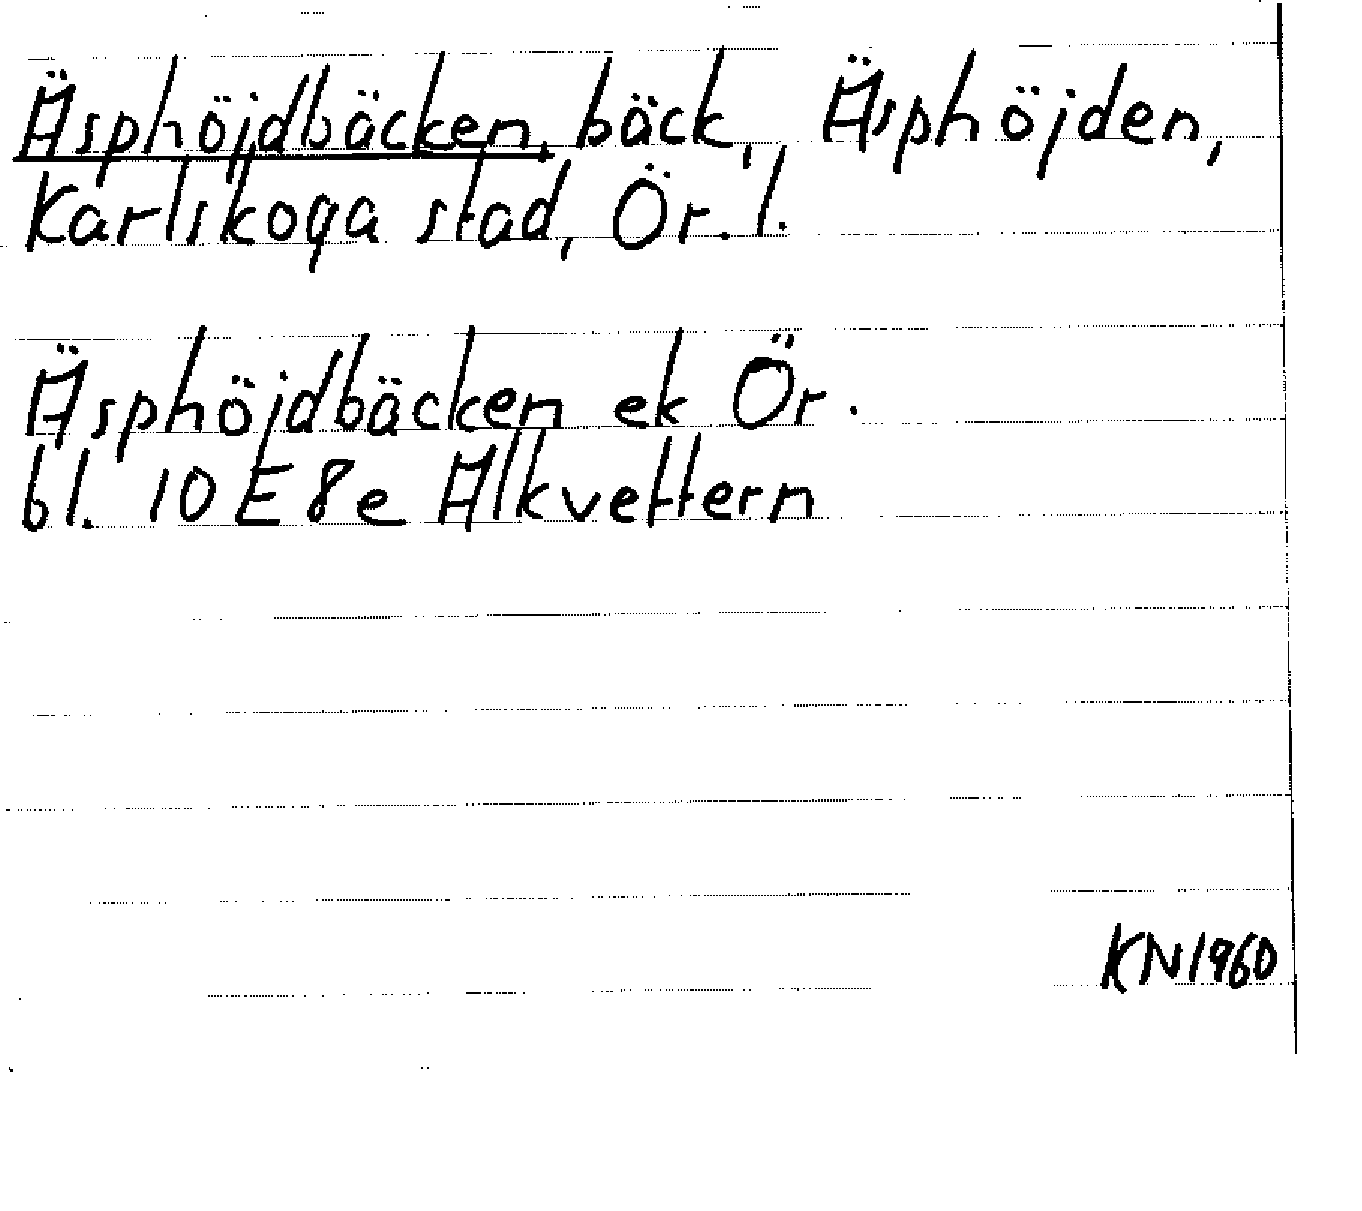 Äsphöjdbäcken, bäck, Äsphöjden,
Karlskoga stad, Ör. l.
Äsphöjdbäcken ek Ör.
bl. 10 E 8e Alkvettern
KN 1960